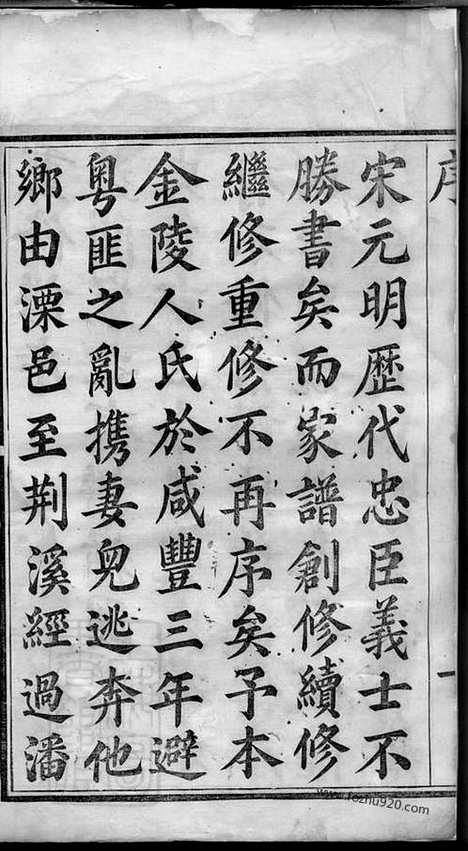 序
一
宋元明歷代忠臣義士不
勝書矣而家譜創修續修
繼修重修不再序矣予本
金陵人氏於咸豐三年避
粤匪之亂携妻皃逃奔他
鄉由溧邑至荆溪經過潘
www.fozhu920.com